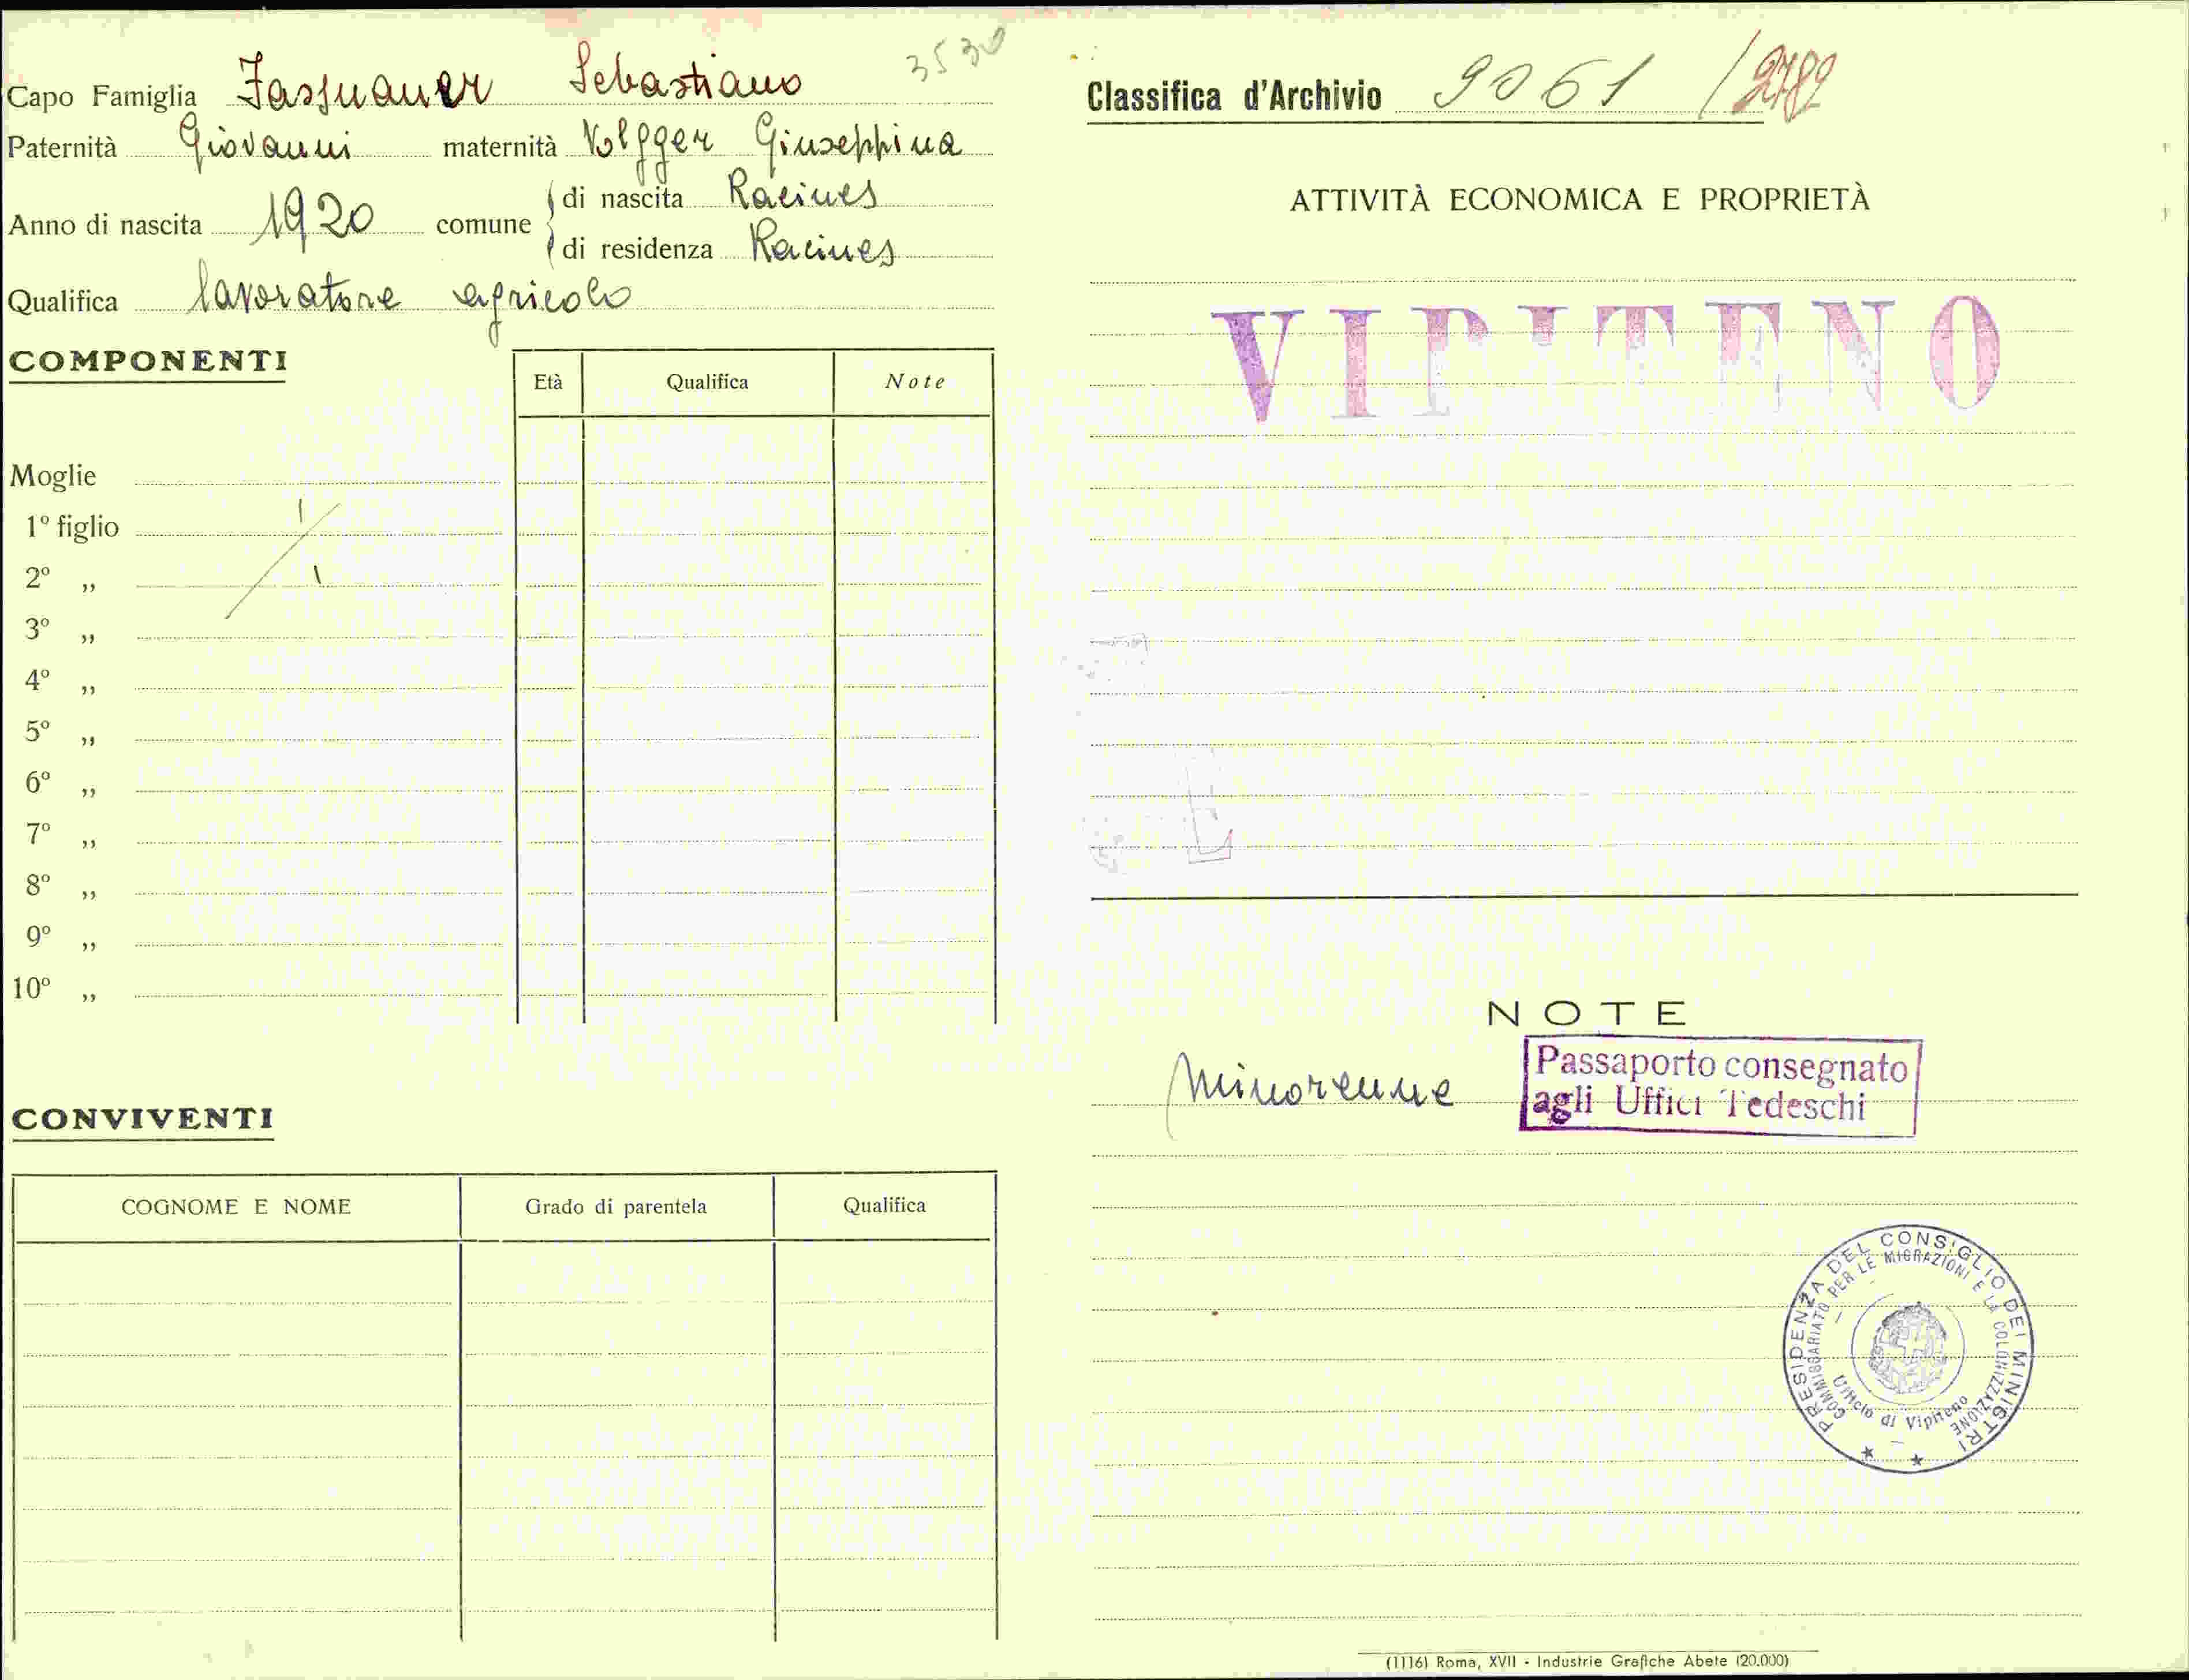 Capo Famiglia Fassnauer Sebastiano 3530
Paternità Giovanni maternità Volgger Giuseppina
Anno di nascita 1920 comune di nascita Racines
di residenza Racines
Qualifica lavoratore agricolo
COMPONENTI
Età Qualifica Note
Moglie
1º figlio
2º „
3º „
4º „
5º „
6º „
7º „
8º „
9º „
10º „
CONVIVENTI
COGNOME E NOME Grado di parentela Qualifica
Classifica d'Archivio 9061 /2782
ATTIVITÀ ECONOMICA E PROPRIETÀ
VIPITENO
E
NOTE
Minorenne
Passaporto consegnato
agli Uffici Tedeschi
PRESIDENZA DEL CONSIGLIO DEI MINISTRI
COMMISSARIATO PER LE MIGRAZIONI E LA COLONIZZAZIONE
Ufficio di Vipiteno
(1116) Roma, XVII - Industrie Grafiche Abete (20.000)